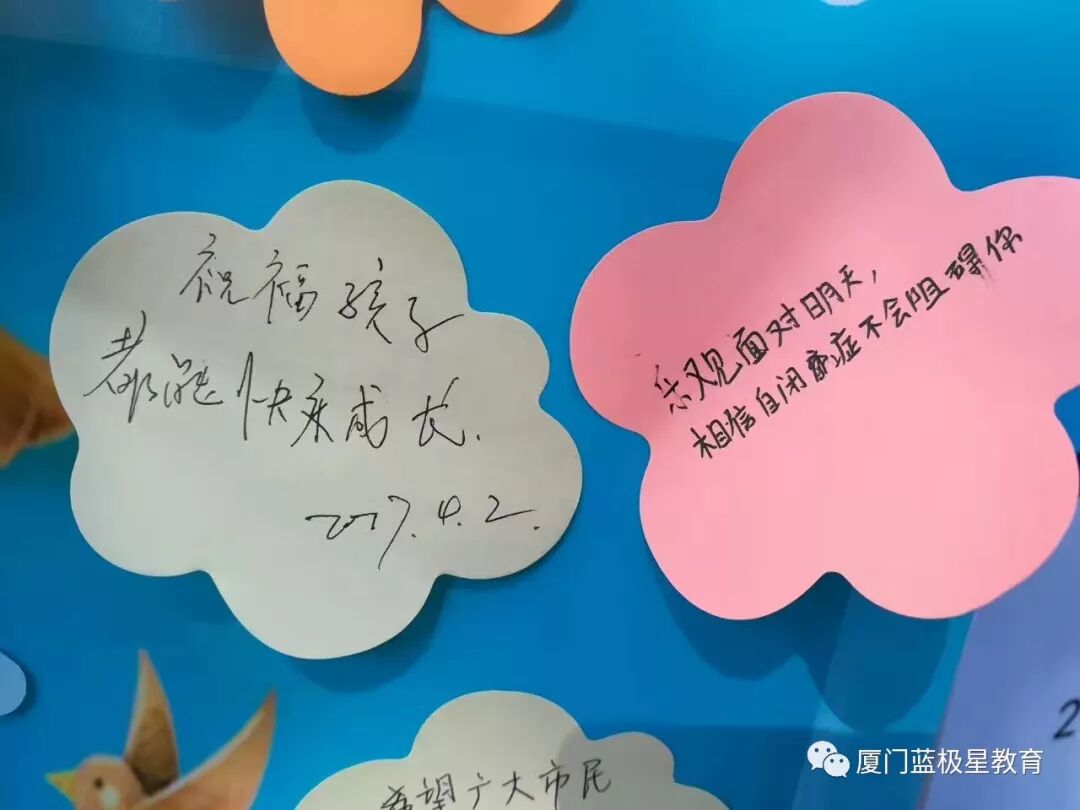 祝福孩子
都能快乐成长.
2017.4.2.
乐观面对明天,
相信自闭症不会阻碍你
希望广大市民
2
厦门蓝极星教育